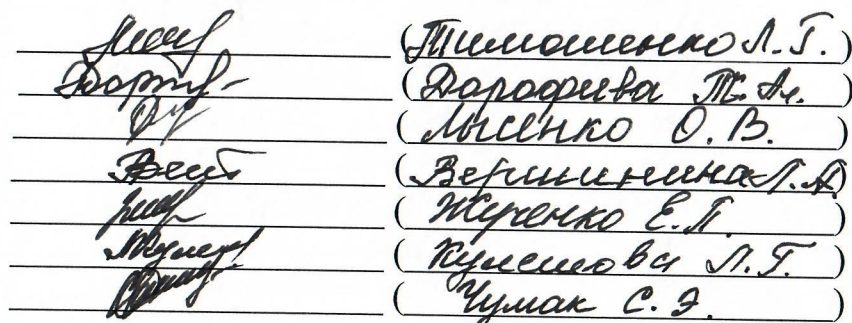 (Тимошенко Л. Г.)
(Дорофиева Т. Ал.)
(Лысенко О. В.)
(Вершинина Л. А.)
(Жученко Е. П.)
(Кулешова Л. Г.)
(Чумак С. Э.)